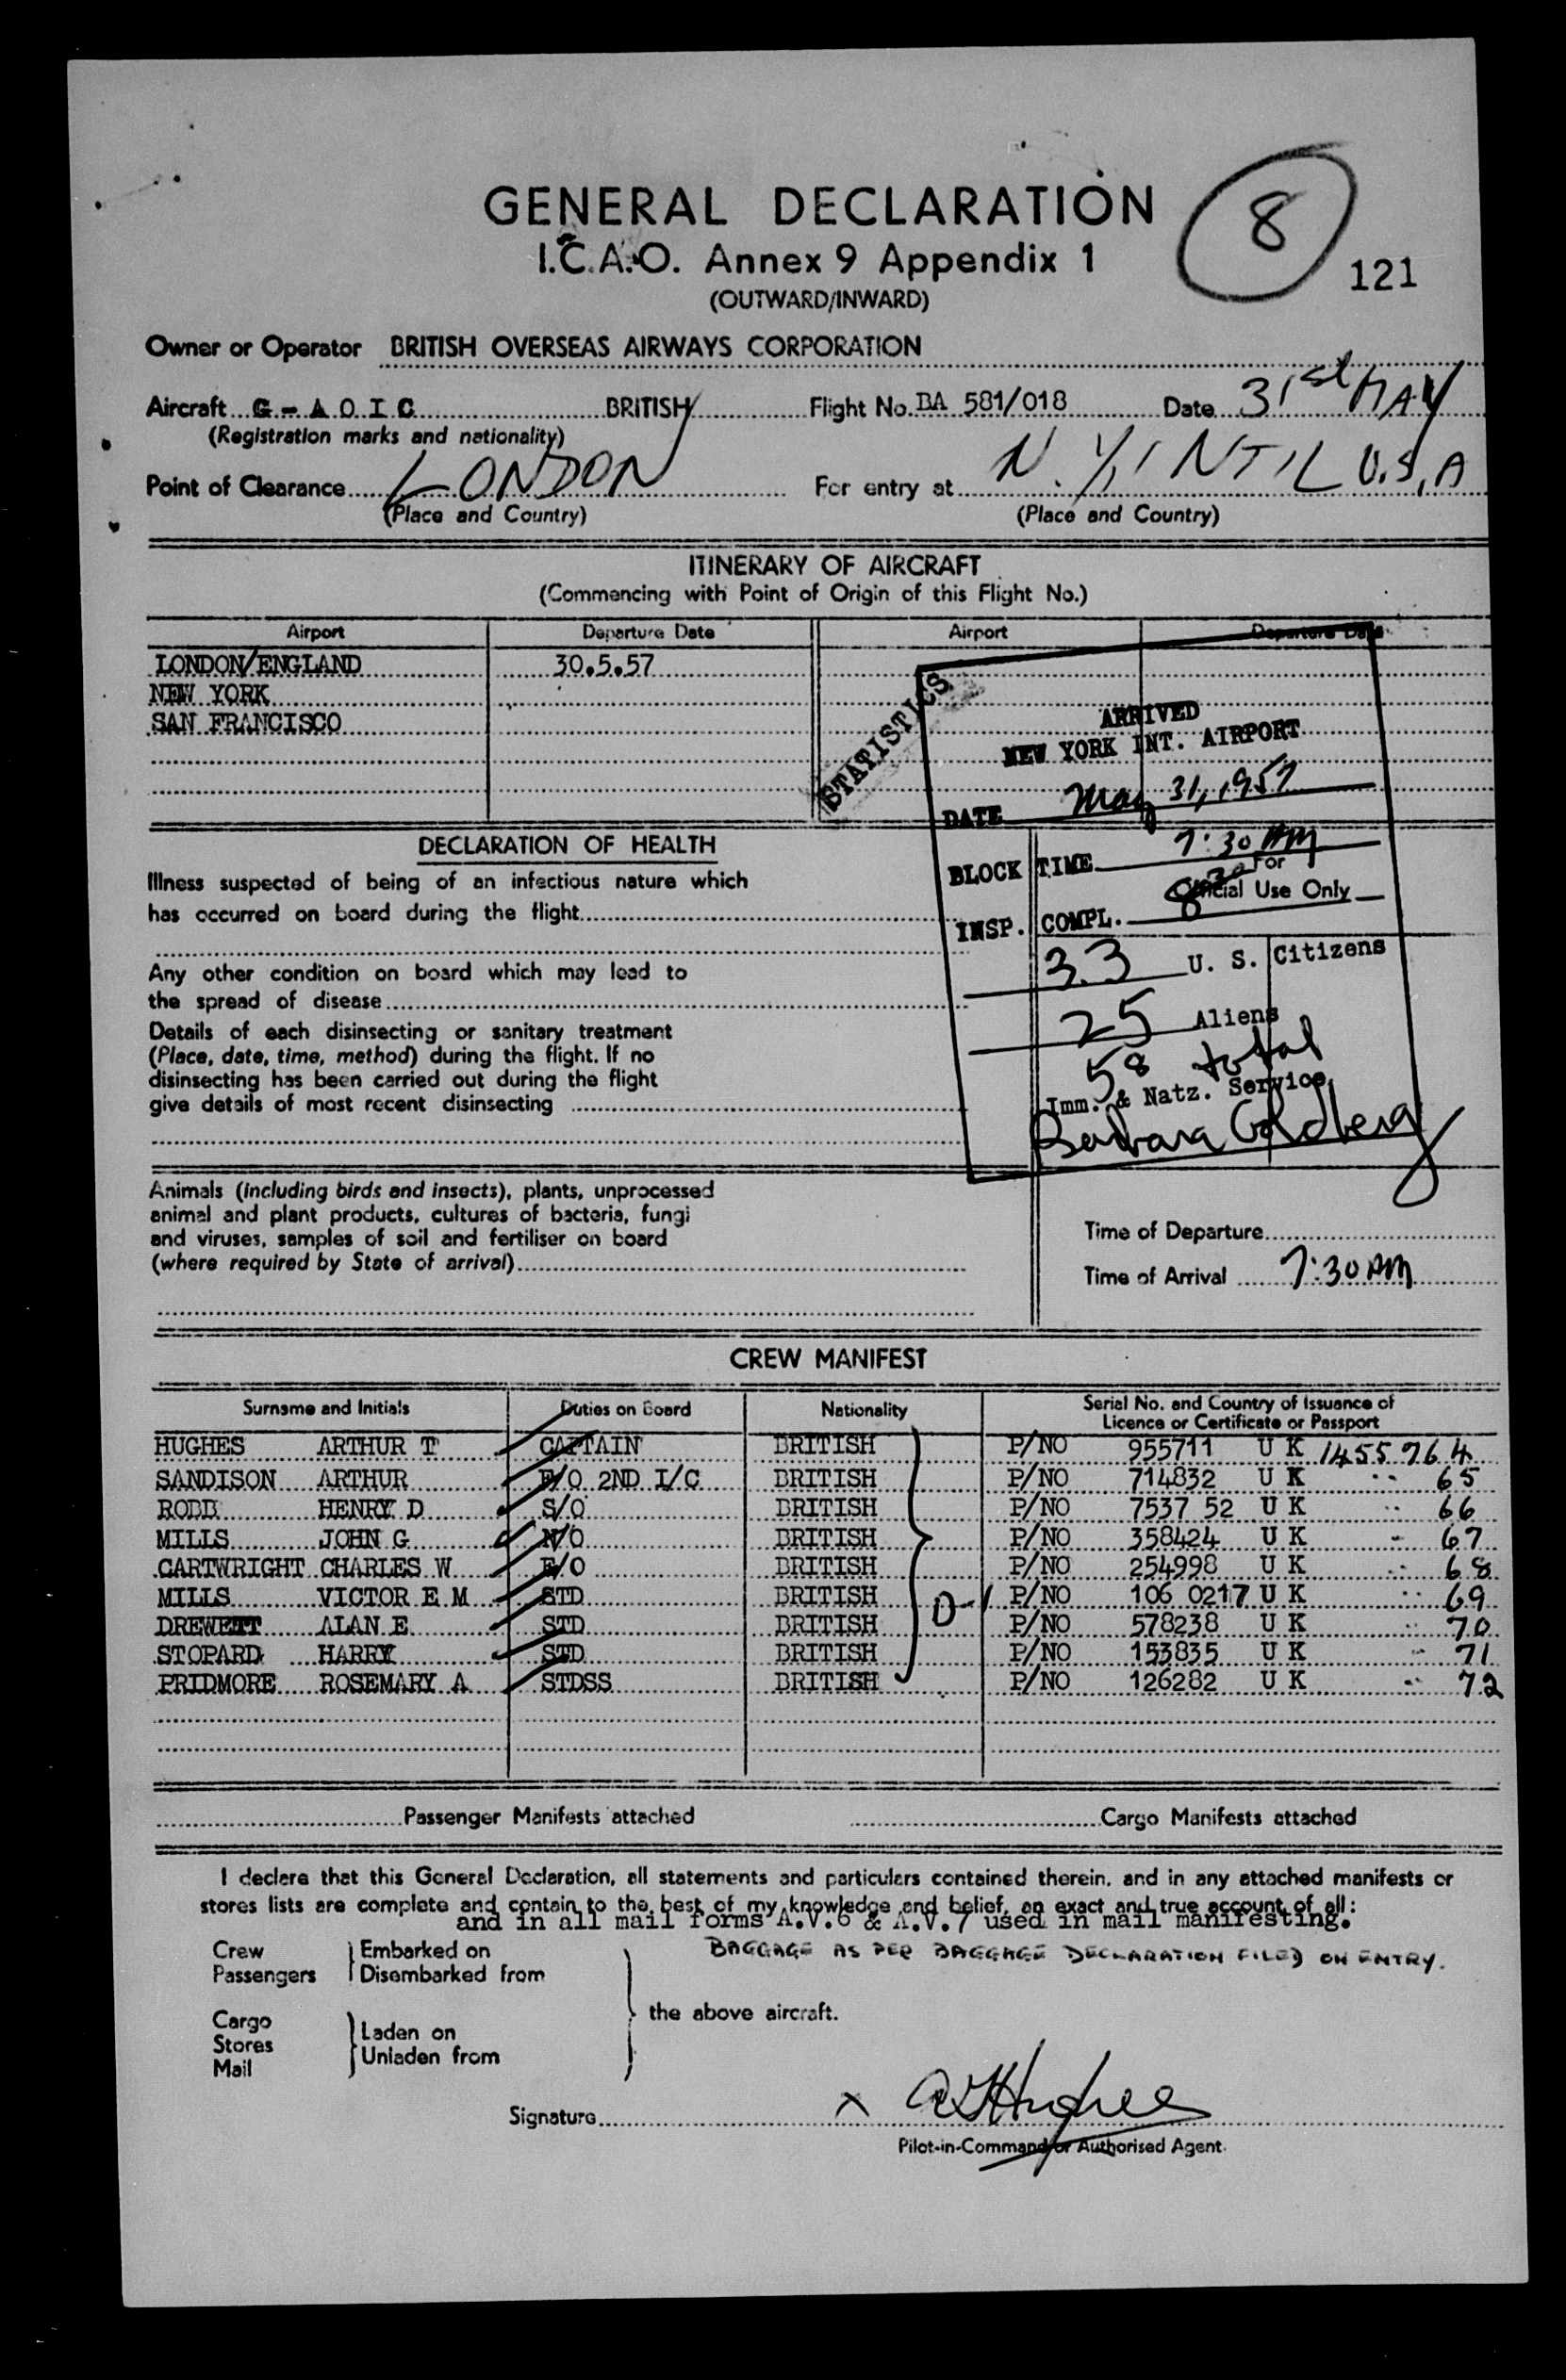 GENERAL DECLARATION
8
I.C.A.O. Annex 9 Appendix 1
121
(OUTWARD/INWARD)
Owner or Operator BRITISH OVERSEAS AIRWAYS CORPORATION
Aircraft G - A O I C BRITISH Flight No. BA 581/018 Date 31st MAY
(Registration marks and nationality)
Point of Clearance LONDON For entry at N.Y. INT'L U.S.A
(Place and Country) (Place and Country)
ITINERARY OF AIRCRAFT
(Commencing with Point of Origin of this Flight No.)
Airport Departure Date Airport Departure Date
LONDON/ENGLAND 30.5.57
NEW YORK
SAN FRANCISCO
STATISTICS
ARRIVED
NEW YORK INT. AIRPORT
DATE May 31, 1957
BLOCK TIME 7:30 AM
INSP. COMPL. 8:30
For
Official Use Only
33 U. S. Citizens
25 Aliens
58 total
Imm. & Natz. Service
Barbara Goldberg
DECLARATION OF HEALTH
Illness suspected of being of an infectious nature which
has occurred on board during the flight
Any other condition on board which may lead to
the spread of disease
Details of each disinsecting or sanitary treatment
(Place, date, time, method) during the flight. If no
disinsecting has been carried out during the flight
give details of most recent disinsecting
Animals (including birds and insects), plants, unprocessed
animal and plant products, cultures of bacteria, fungi
and viruses, samples of soil and fertiliser on board
(where required by State of arrival)
Time of Departure
Time of Arrival 7:30 AM
CREW MANIFEST
Surname and Initials Duties on Board Nationality Serial No. and Country of Issuance of
Licence or Certificate or Passport
HUGHES ARTHUR T CAPTAIN BRITISH P/NO 955711 U K 1455764
SANDISON ARTHUR F/O 2ND I/C BRITISH P/NO 714832 U K " 65
RODD HENRY D S/O BRITISH P/NO 7537 52 U K " 66
MILLS JOHN G N/O BRITISH P/NO 358424 U K " 67
CARTWRIGHT CHARLES W E/O BRITISH P/NO 254998 U K " 68
MILLS VICTOR E M STD BRITISH D-1 P/NO 106 0217 U K " 69
DREWETT ALAN E STD BRITISH P/NO 578238 U K " 70
STOPARD HARRY STD BRITISH P/NO 153835 U K " 71
PRIDMORE ROSEMARY A STDSS BRITISH P/NO 126282 U K " 72
Passenger Manifests attached Cargo Manifests attached
I declare that this General Declaration, all statements and particulars contained therein, and in any attached manifests or
stores lists are complete and contain to the best of my knowledge and belief, an exact and true account of all:
and in all mail forms A.V.6 & A.V.7 used in mail manifesting.
BAGGAGE AS PER BAGGAGE DECLARATION FILED ON ENTRY.
Crew Embarked on
Passengers Disembarked from
the above aircraft.
Cargo
Stores Laden on
Mail Unladen from
Signature x A T Hughes
Pilot-in-Command or Authorised Agent.